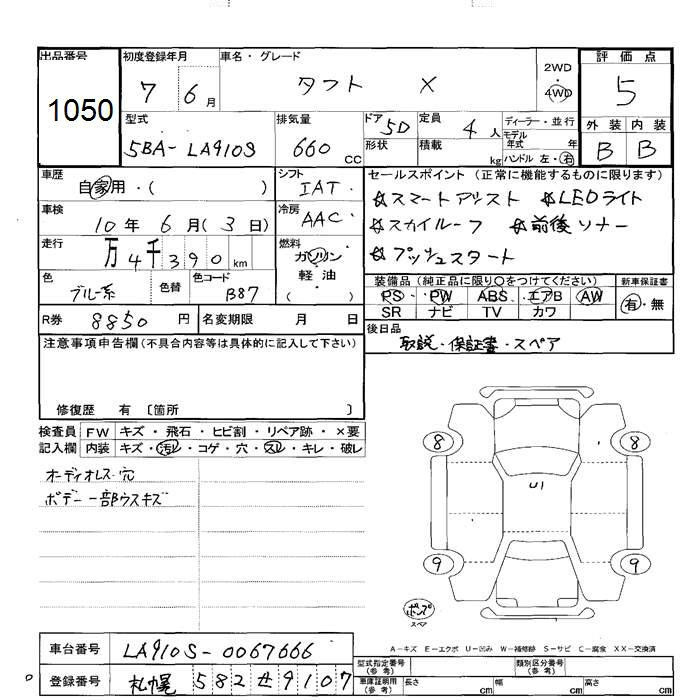 出品番号
1050
初度登録年月
7 6月
車名・グレード
タフト X
2WD
・
4WD
評価点
5
外装 内装
B B
型式
5BA-LA910S
排気量
660 cc
ドア 5D
形状
定員 4 人
積載 kg
ディーラー・並行
モデル
年式 年
ハンドル 左・右
車歴
自家用・( )
シフト
IAT
車検
10年 6月(3日)
冷房
AAC
走行
万4千390km
燃料
ガソリン
軽油
( )
色
ブルー系
色替
色コード
B87
セールスポイント(正常に機能するものに限ります)
☆スマートアシスト ☆LEDライト
☆スカイルーフ ☆前後ソナー
☆プッシュスタート
装備品(純正品に限り○をつけてください)
PS PW ABS エアB AW
SR ナビ TV カワ
新車保証書
有・無
R券 8850 円
名変期限 月 日
後日品
取説・保証書・スペア
注意事項申告欄(不具合内容等は具体的に記入して下さい)
修復歴 有 〔箇所 〕
検査員
記入欄
FW キズ・飛石・ヒビ割・リペア跡・×要
内装 キズ・汚レ・コゲ・穴・スレ・キレ・破レ
オーディオレス穴
ボデー一部ウスキズ
8 8
U1
9 9
ポンプ
スペア
A-キズ E-エクボ U-凹み W-補修跡 S-サビ C-腐食 XX-交換済
車台番号 LA910S-0067666
登録番号 札幌 582せ9107
型式指定番号
(参考)
類別区分番号
(参考)
車庫証明用
(参考)
長さ cm 幅 cm 高さ cm